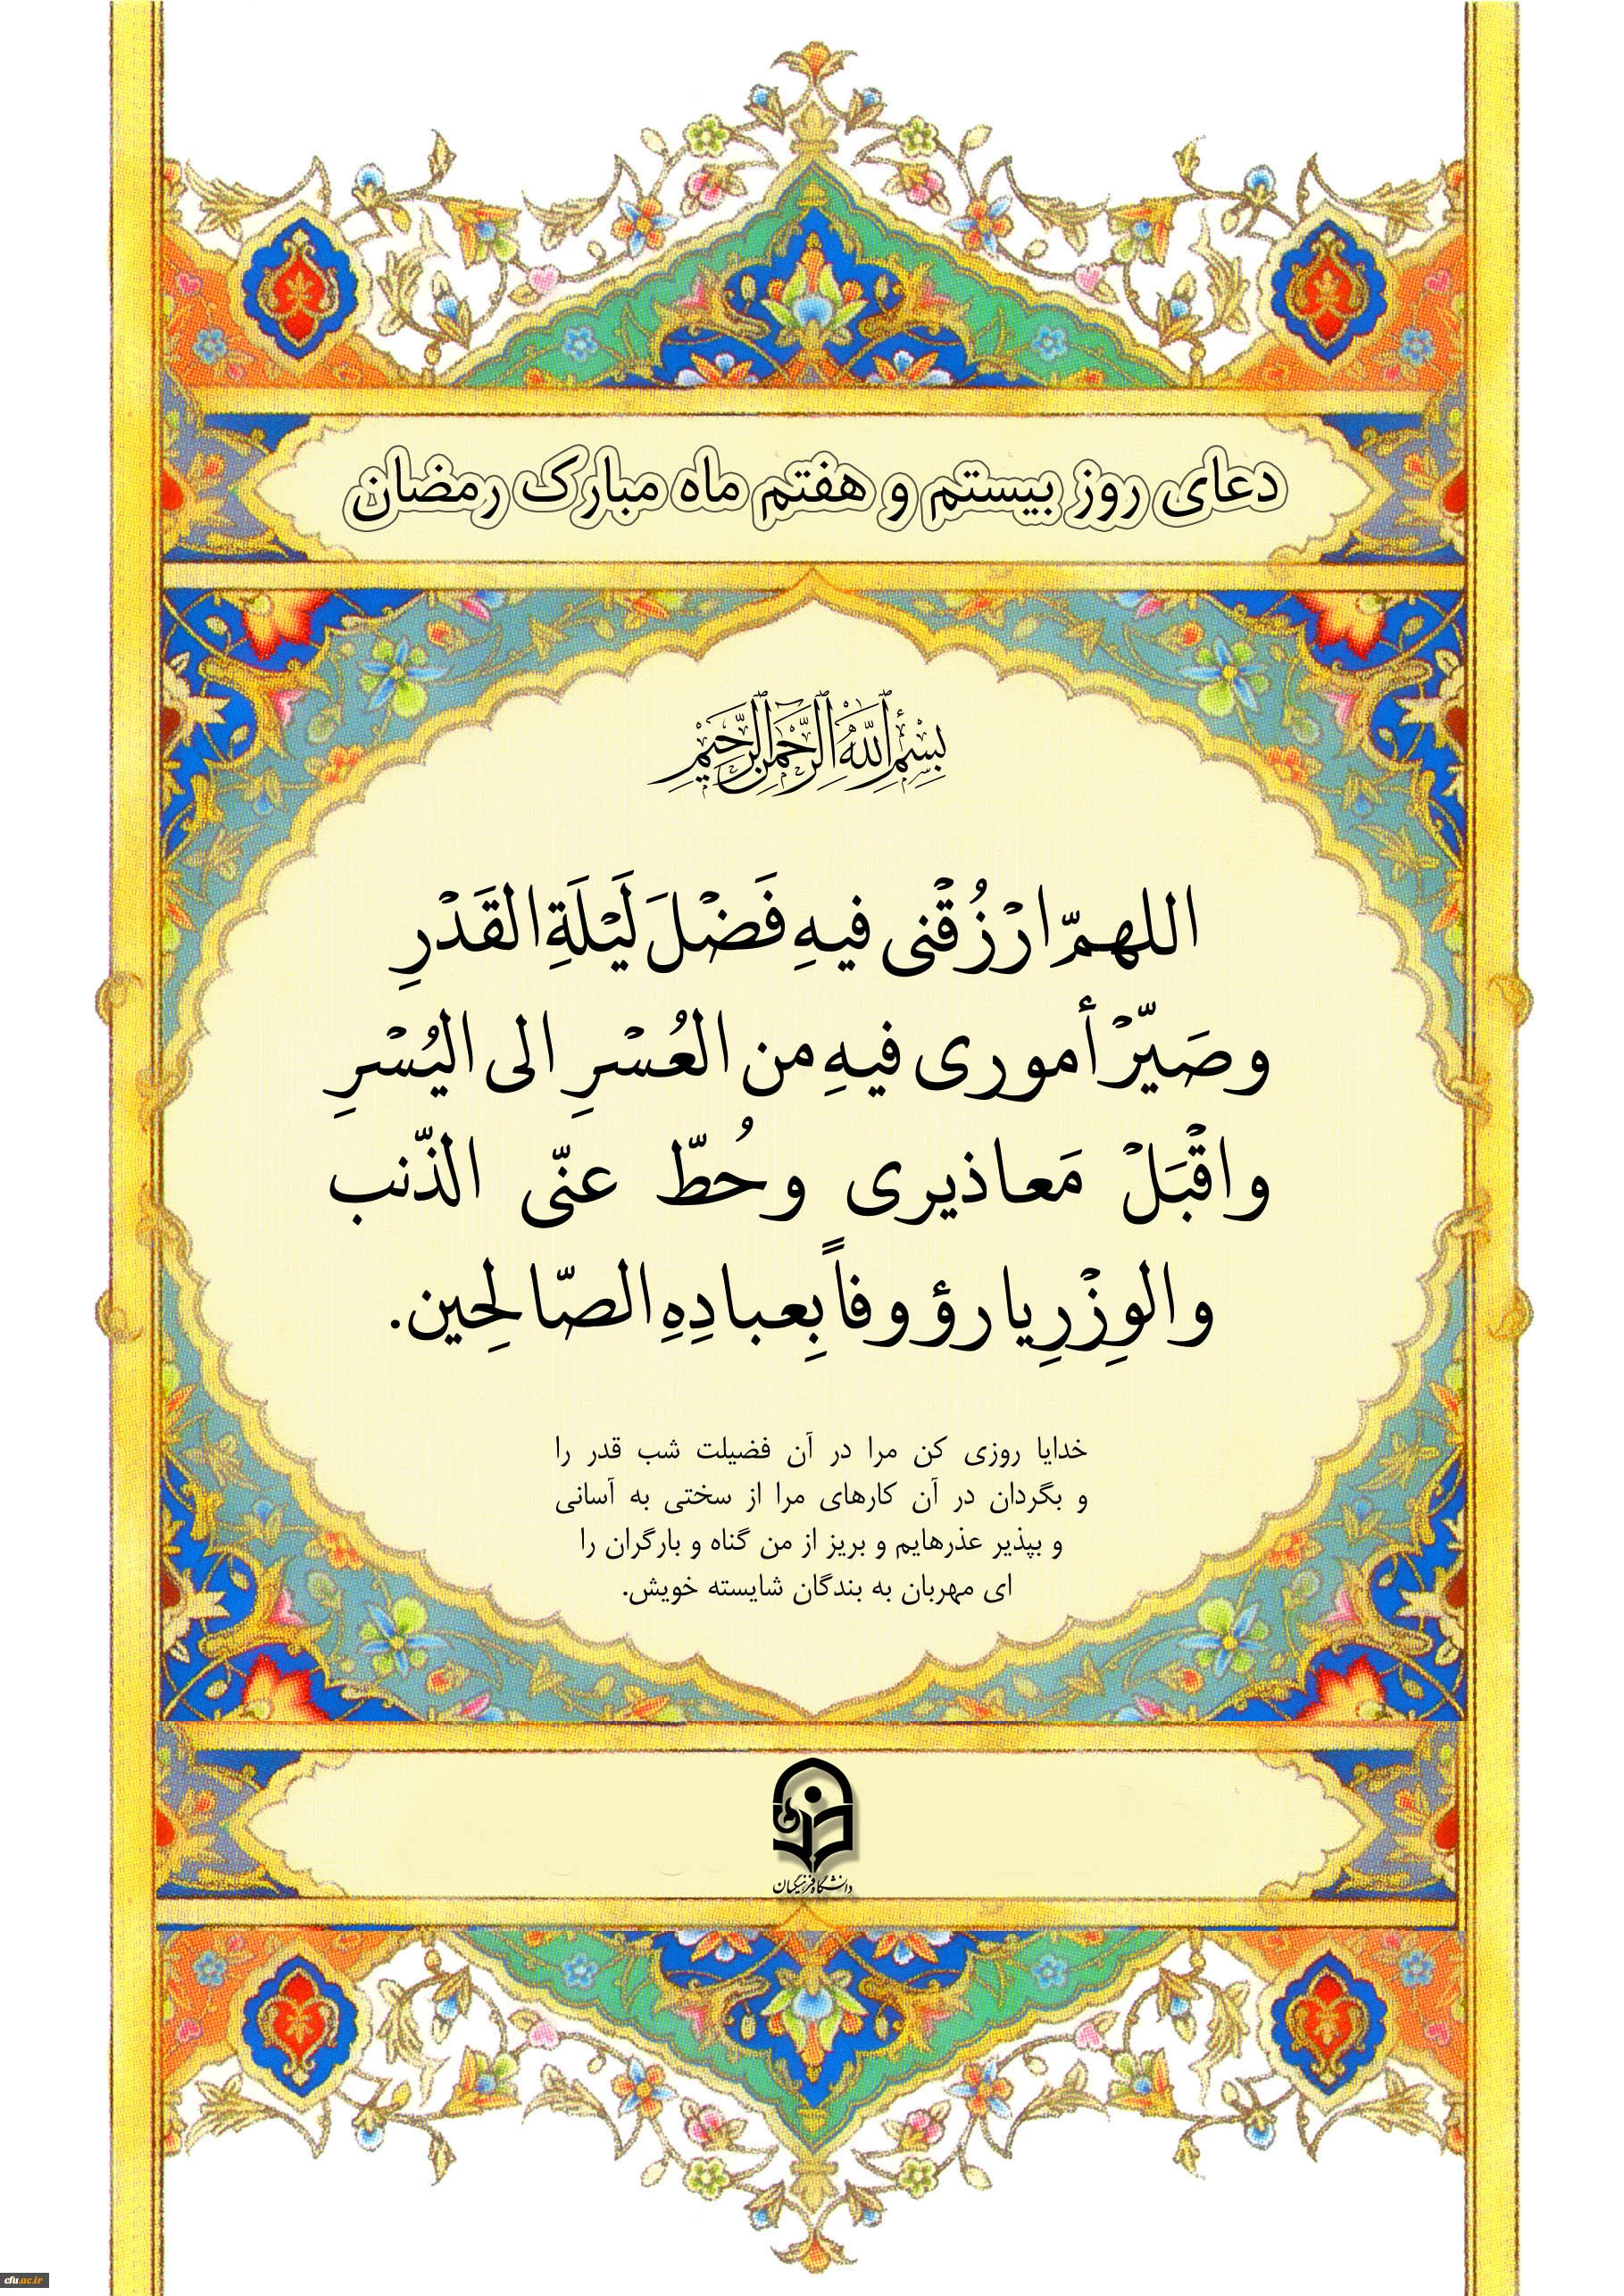 دعای روز بیستم و هفتم ماه مبارک رمضان
بِسْمِ اللَّهِ الرَّحْمَنِ الرَّحِيمِ
اللهمّ ارْزُقْنی فیهِ فَضْلَ لَیْلَةِ القَدْرِ
وصَیّرْ أموری فیهِ من العُسْرِ الی الیُسْرِ
واقْبَلْ مَعاذیری وحُطّ عنّی الذّنب
والوِزْرِ یا رؤوفاً بِعبادِهِ الصّالِحین.
خدایا روزی کن مرا در آن فضیلت شب قدر را
و بگردان در آن کارهای مرا از سختی به آسانی
و بپذیر عذرهایم و بریز از من گناه و بارگران را
ای مهربان به بندگان شایسته خویش.
دانشگاه فرهنگیان
cfu.ac.ir